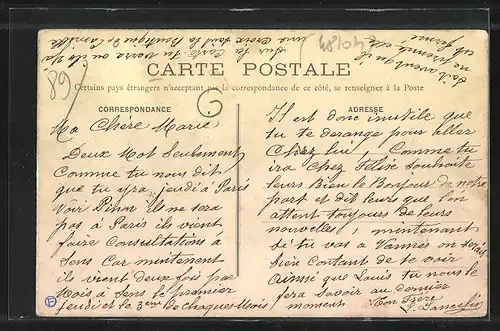 CARTE POSTALE
Certains pays étrangers n'acceptant pas la correspondance de ce côté, se renseigner à la Poste
CORRESPONDANCE
Ma Chère Marie
Deux Mot Seulement
Comme tu nous dit
que tu ira jeudi à Paris
Voir Pinar Il ne sera
pas à Paris ils vient
faire Consultations à
Sens Car maintenent
ils vient deux fois par
Mois à Sens le premier
jeudi et le 3eme de chaque Mois
ADRESSE
Il est donc inutile que
tu te derange pour aller
Chez lui, Comme tu
ira chez Felix Souhaite
leurs Bien le Bonjour de notre
part et dit leurs que l'on
attent toujours de leurs
nouvelles, mintenant
si tu vas a Vannes on serais
bien Contant de te voir
Ainsi que Louis tu nous le
fera Savoir au dernier
moment
Ton Frère
89